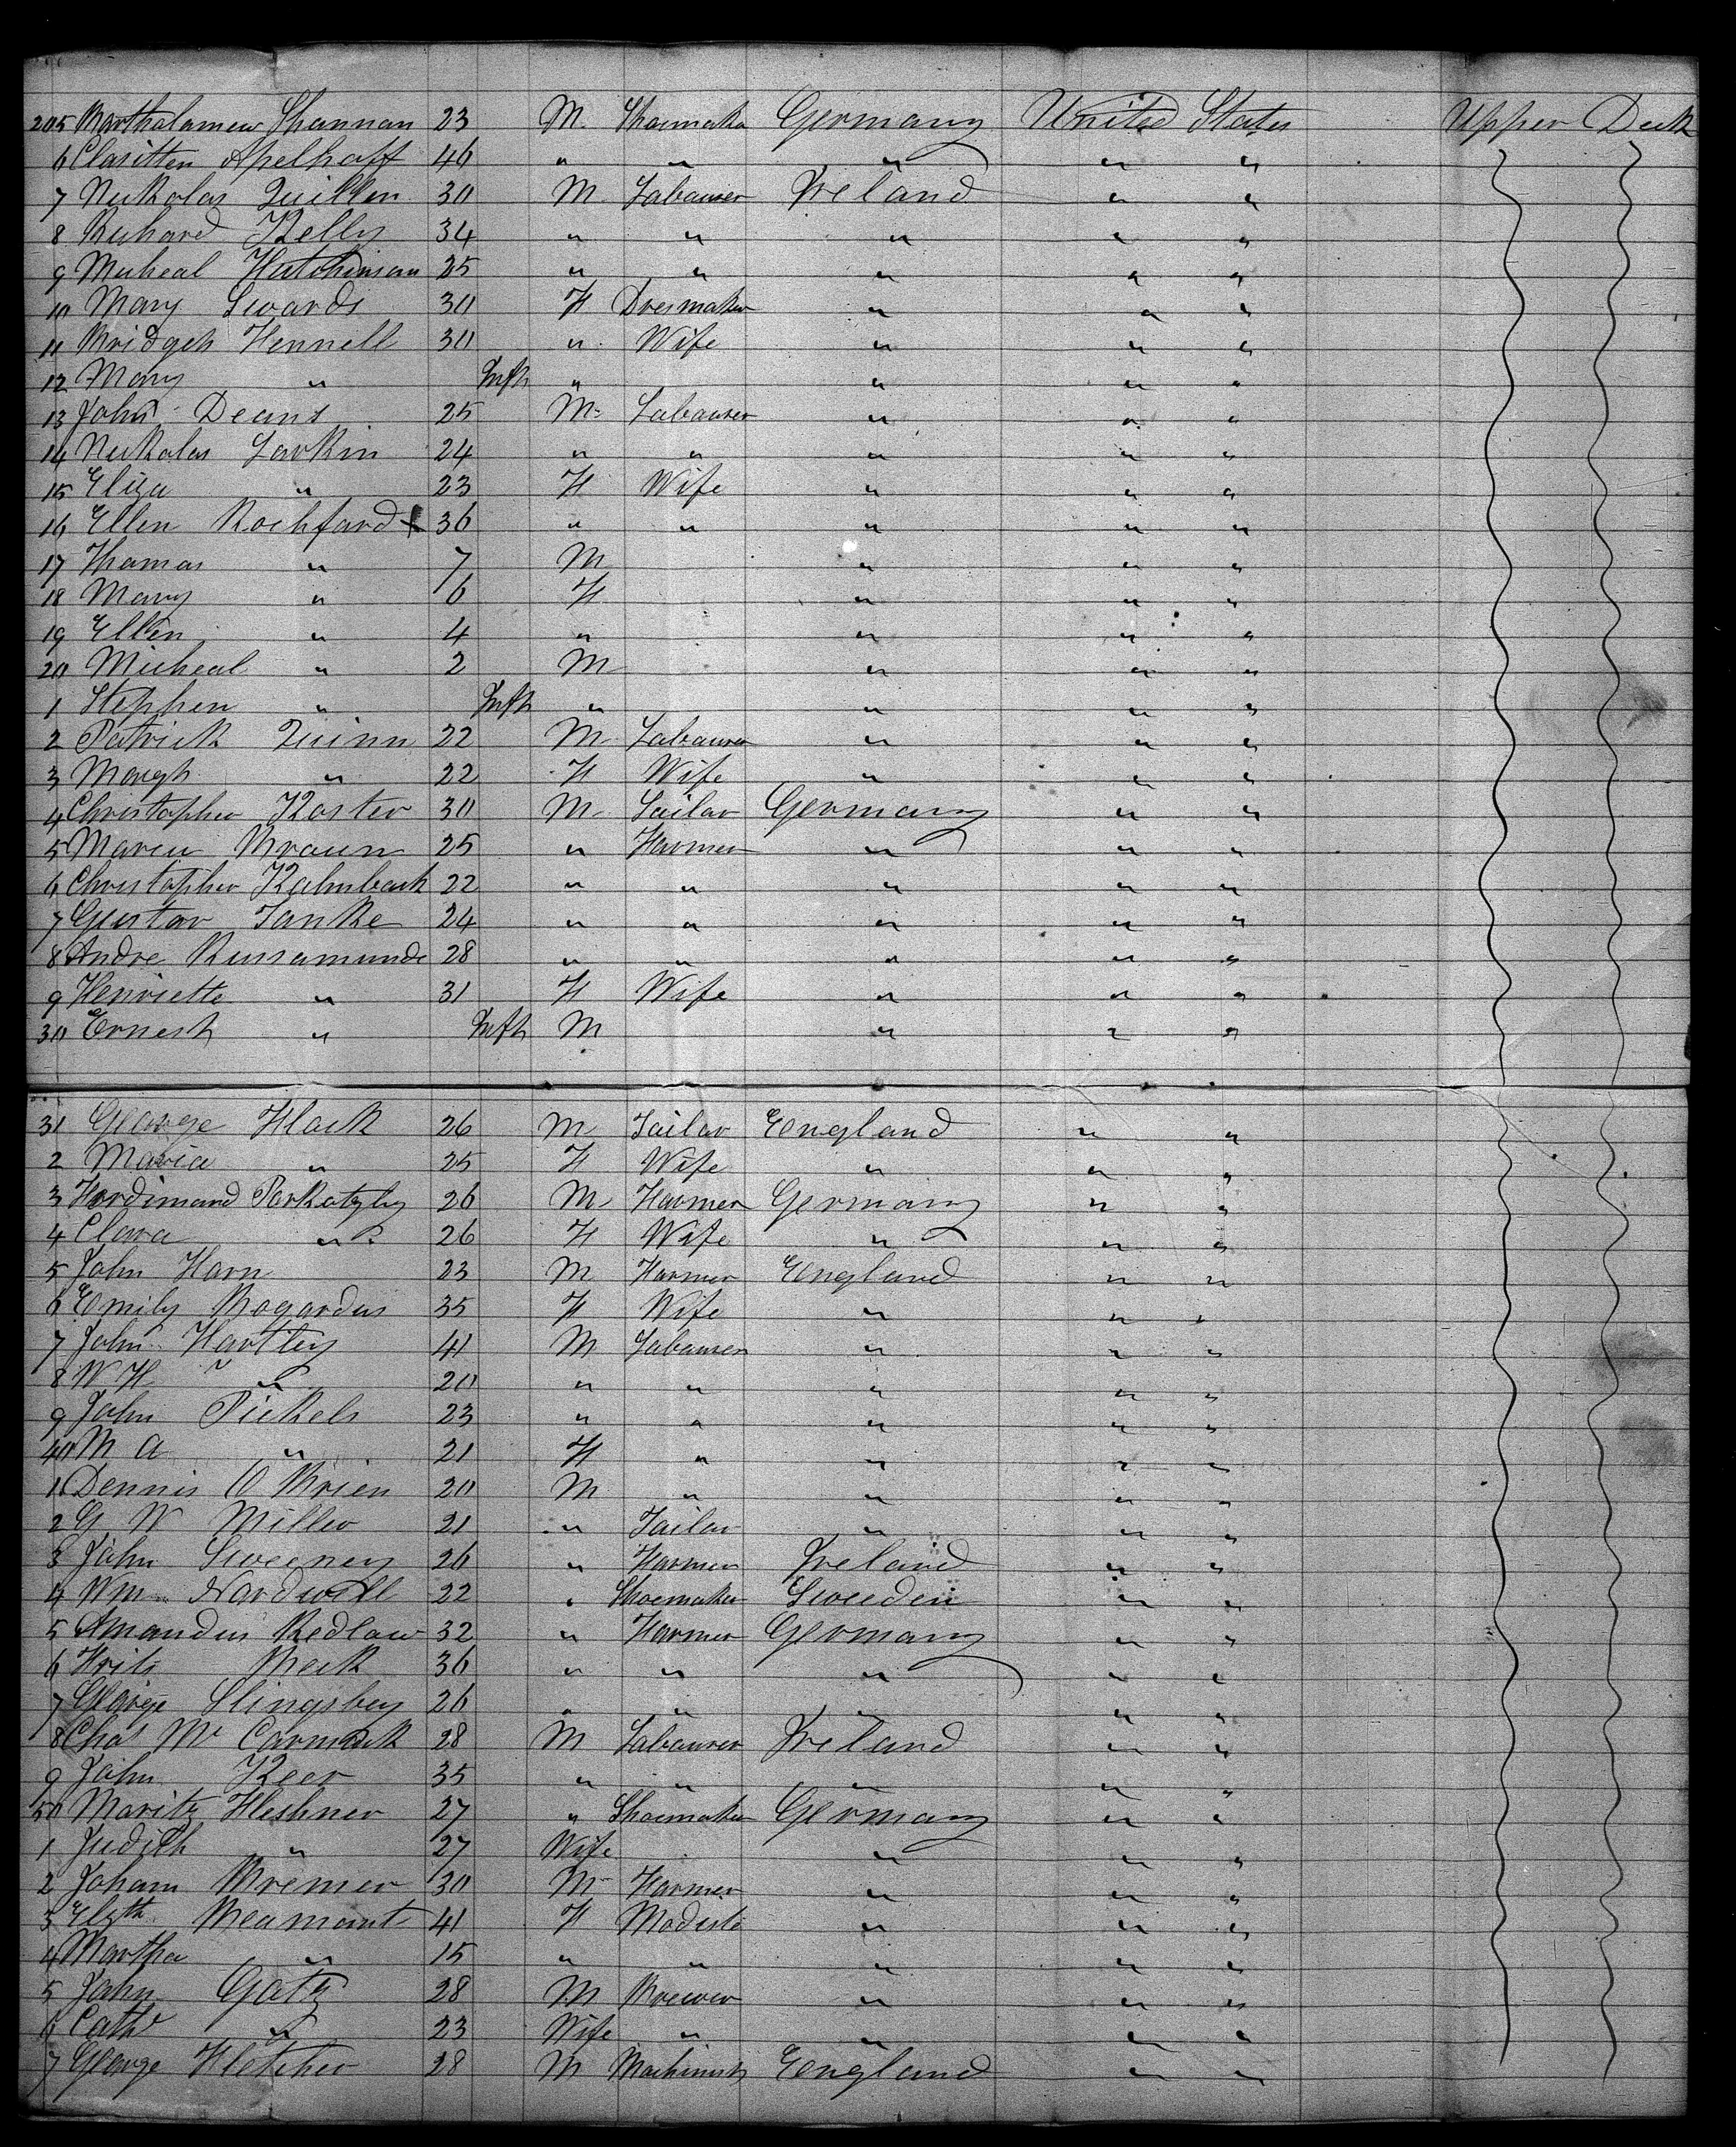 205 Bartholamew Shannan 23 M. Shoemaker Germany United States Upper Deck
6 Clasitten Apelhoff 46 " " " " "
7 Nickolas Quillen 30 M. Labourer Ireland " "
8 Richard Kelly 34 " " " " "
9 Micheal Hutchinson 25 " " " " "
10 Mary Swards 30 F Dresmaker " " "
11 Bridget Fennell 30 " Wife " " "
12 Mary " Inft " " " "
13 John Deans 25 M. Labourer " " "
14 Nickolas Larkin 24 " " " " "
15 Eliza " 23 F Wife " " "
16 Ellen Rochford 36 " " " " "
17 Thomas " 7 M " " "
18 Mary " 6 F " " "
19 Ellen " 4 " " " "
20 Micheal " 2 M " " "
1 Stephen " Inft " " " "
2 Patrick Quinn 22 M. Labourer " " "
3 Margh " 22 F Wife " " "
4 Christopher Koster 30 M. Sailor Germany " "
5 Braun 25 " Farmer " " "
6 Christopher Kalmback 22 " " " " "
7 Gustav Janke 24 " " " " "
8 Andre Russamunde 28 " " " " "
9 Henriette " 31 F Wife " " "
30 Ernest " Inft M " " "
31 George Flack 26 M Tailor England " "
2 Maria " 25 F Wife " " "
3 Ferdimand 26 M. Farmer Germany " "
4 Clara " 26 F Wife " " "
5 John Horn 23 M Farmer England " "
6 Emily Bogardus 35 F Wife " " "
7 John Hartley 41 M Labourer " " "
8 W H " 20 " " " " "
9 John Pickels 23 " " " " "
40 M A " 21 F " " " "
1 Dennis O Brien 20 M " " " "
2 G W Miller 21 " Tailor " " "
3 John Sweeney 26 " Farmer Ireland " "
4 Wm Nardwell 22 " Shoemaker Sweeden " "
5 Amandus Redlaw 32 " Farmer Germany " "
6 Frits Beck 36 " " " " "
7 George Slingsbey 26 " " " " "
8 Chas Mc Carmack 28 M Labourer Ireland " "
9 John Keer 35 " " " " "
50 Moritz Fleshner 27 " Shoemaker Germany " "
1 Judith " 27 Wife " " "
2 Joham Bremer 30 M Farmer " " "
3 Elzth Beamont 41 F Modiste " " "
4 Martha " 15 " " " " "
5 John Gotz 28 M Brewer " " "
6 Cath " 23 Wife " " " "
7 George Fletcher 28 M Machinist England " "